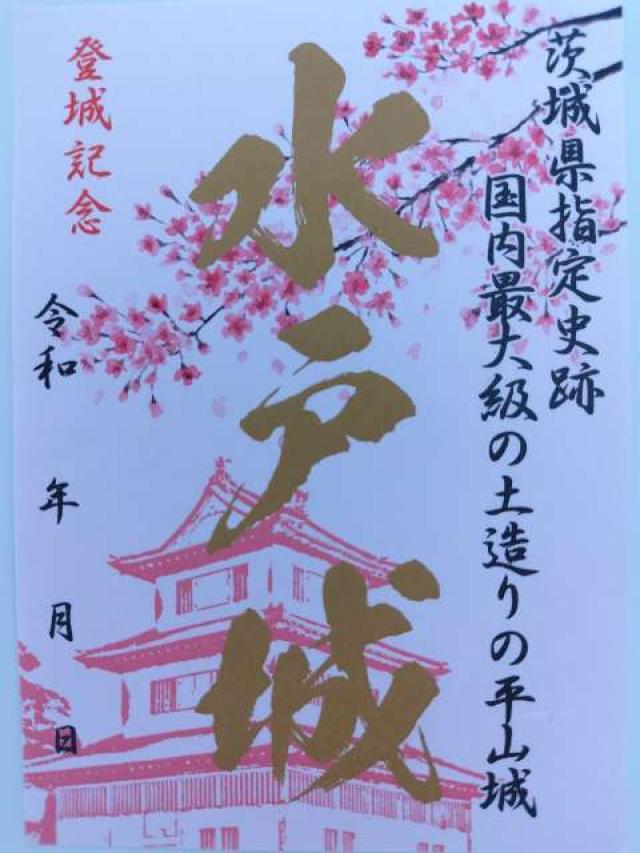 茨城県指定史跡
国内最大級の土造りの平山城
水戸城
登城記念
令和 年 月 日